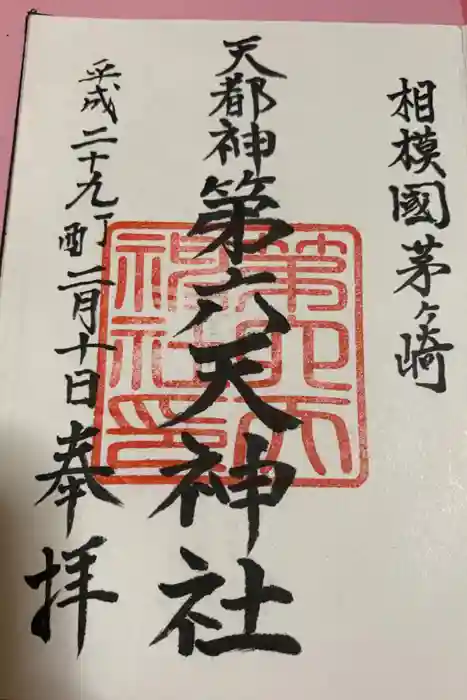 相模國茅ヶ崎
天都神第六天神社
平成二十九丁酉二月十日奉拝
第六天
神社印